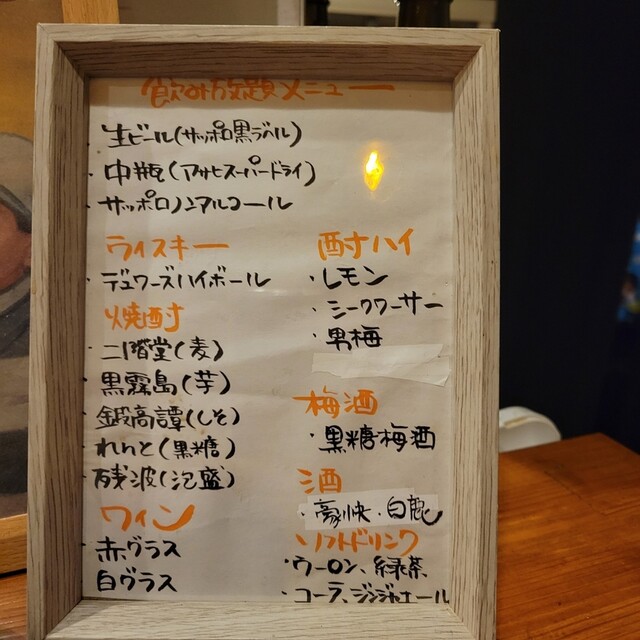 飲み放題メニュー
・生ビール(サッポロ黒ラベル)
・中瓶(アサヒスーパードライ)
・サッポロノンアルコール
ウィスキー
・デュワーズハイボール
焼酎
二階堂(麦)
黒霧島(芋)
鍛高譚(しそ)
れんと(黒糖)
残波(泡盛)
ワイン
赤グラス
白グラス
酎ハイ
・レモン
・シークワーサー
・男梅
梅酒
・黒糖梅酒
酒
・豪快・白鹿
ソフトドリンク
・ウーロン、緑茶
・コーラ、ジンジャエール